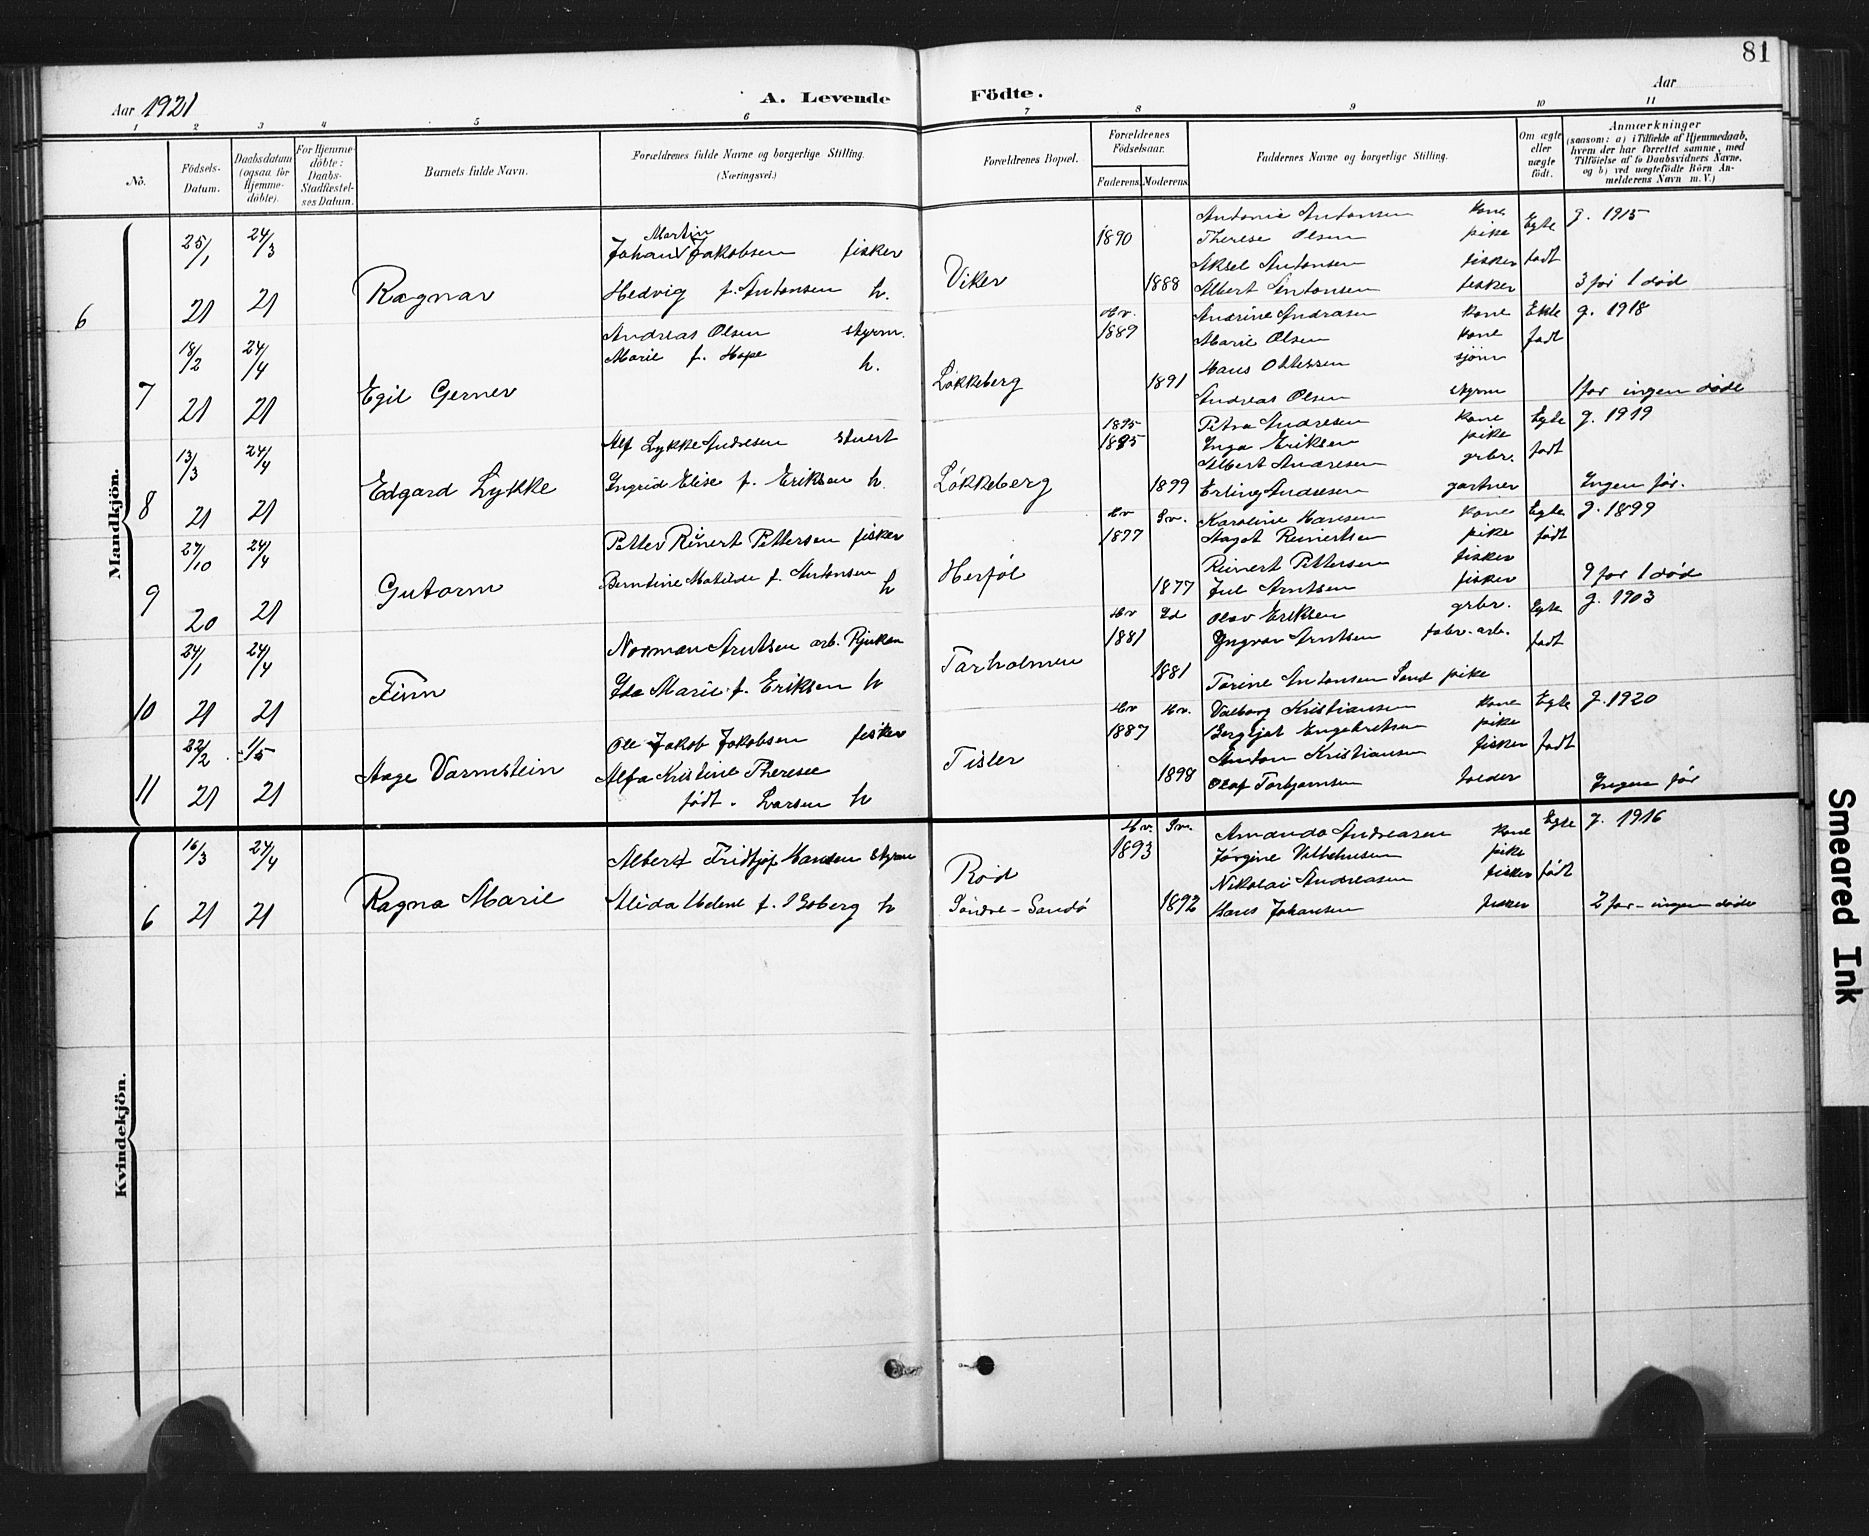 81
Aar 1921 A. Levende Födte. Aar
1 2 3 4 5 6 7 8 9 10 11
No.
Födsels-Datum.
Daabsdatum (ogsaa for Hjemmedöbte).
For Hjemmedöbte: Daabs-Stadfæstelses Datum.
Barnets fulde Navn.
Forældrenes fulde Navne og borgerlige Stilling.
(Næringsvei.)
Forældrenes Bopæl.
Forældrenes Födselsaar.
Faderens. Moderens.
Faddernes Navne og borgerlige Stilling.
Om ægte eller uægte födt.
Anmærkninger
(saasom: a) i Tilfælde af Hjemmedaab, hvem der har forrettet samme, med Tilföielse af to Daabsvidners Navne, og b) ved uægtefödte Börn Anmelderens Navn m. V.)
Mandkjön.
6 25/1 21 24/3 21 Ragnar
Johan Martin Jakobsen fisker
Hedvig f. Antonsen h.
Viker 1890 1888
Antonie Antonsen kone
Therese Olsen pike
Aksel Antonsen fisker
Albert Antonsen fisker
Egte født g. 1915
3 før 1 død
7 18/2 21 24/4 21 Egil Gerner
Andreas Olsen styrm.
Marie f. Hope h.
Løkkeberg Hv. 1889 1891
Andrine Andrasen kone
Marie Olsen kone
Hans Ottersen sjöm
Andreas Olsen styrm
Ekte født g. 1918
1 før ingen døde
8 13/3 21 24/4 21 Edgard Lykke
Alf Lykke Andresen stuert
Ingrid Elise f. Eriksen h.
Løkkeberg 1895 1895 1899
Petra Andresen kone
Inga Eriksen pike
Albert Andresen grbr.
Erling Andresen gartner
Egte født g. 1919
Ingen før.
9 27/10 20 24/4 21 Gutorm
Petter Rinert Pettersen fisker
Berntine Matilde f. Antonsen h
Herföl Hv Sv. 1877 1877
Karoline Hansen kone
Aagot Reinertsen pike
Reinert Pettersen fisker
Jul Arntsen fisker
Egte født g. 1899
9 før 1 død
10 24/1 21 24/4 21 Finn
Norman Arntsen arb. Rjukan
Ida Marie f. Eriksen h
Tarholmen Hv 1881 1881
Olav Eriksen grbr.
Yngvar Arntsen fabr. arb.
Torine Antonsen Sand pike
Egte født g. 1903
11 22/2 21 1/5 21 Aage Varmstein
Ole Jakob Jakobsen fisker
Alfa Kristine Therese
født. Larsen h
Tisler Hv Hv. 1887 1898
Valborg Kristiansen kone
Bergljot Engebretsen pike
Anton Kristiansen fisker
Olaf Torbjørnsen tolder
Egte født g. 1920
Ingen før
Kvindekjön.
6 16/3 21 24/4 21 Ragna Marie
Albert Fridtjof Hansen styrm
Alida Helene f. Boberg h
Rød
Söndre-Sandö Hv. Sv. 1893 1892
Amanda Andreasen kone
Jørgine Vilhelmsen pike
Nikolai Andreasen fisker
Hans Johansen fisker
Egte født g. 1916
2 før - ingen døde
Smeared Ink